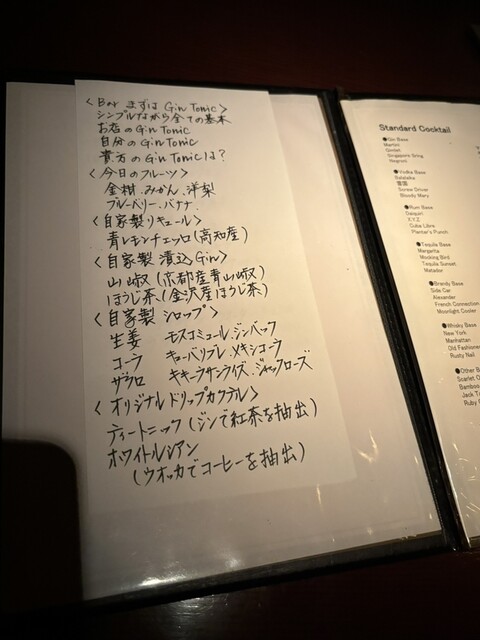 〈Bar まずは Gin Tonic〉
シンプルながら全ての基本
お店のGin Tonic
自分のGin Tonic
貴方のGin Tonicは?
〈今日のフルーツ〉
金柑.みかん.洋梨
ブルーベリー.バナナ
〈自家製リキュール〉
青レモンチェッロ(高知産)
〈自家製 漬込Gin〉
山椒(京都産青山椒)
ほうじ茶(金沢産ほうじ茶)
〈自家製シロップ〉
生姜 モスコミュール.ジンバック
コーラ キューバリブレ.メキシコーラ
ザクロ テキーラサンライズ.ジャックローズ
〈オリジナルドリップカクテル〉
ティートニック(ジンで紅茶を抽出)
ホワイトルシアン
(ウオッカでコーヒーを抽出)
Standard Cocktail
●Gin Base
Martini
Gimlet
Singapore Sling
Negroni
●Vodka Base
Balalaika
雪国
Screw Driver
Bloody Mary
●Rum Base
Daiquiri
X.Y.Z.
Cuba Libre
Planter's Punch
●Tequila Base
Margarita
Mocking Bird
Tequila Sunset
Matador
●Brandy Base
Side Car
Alexander
French Connection
Moonlight Cooler
●Whisky Base
New York
Manhattan
Old Fashione
Rusty Nail
●Other B
Scarlet O
Bamboo
Jack T
Ruby